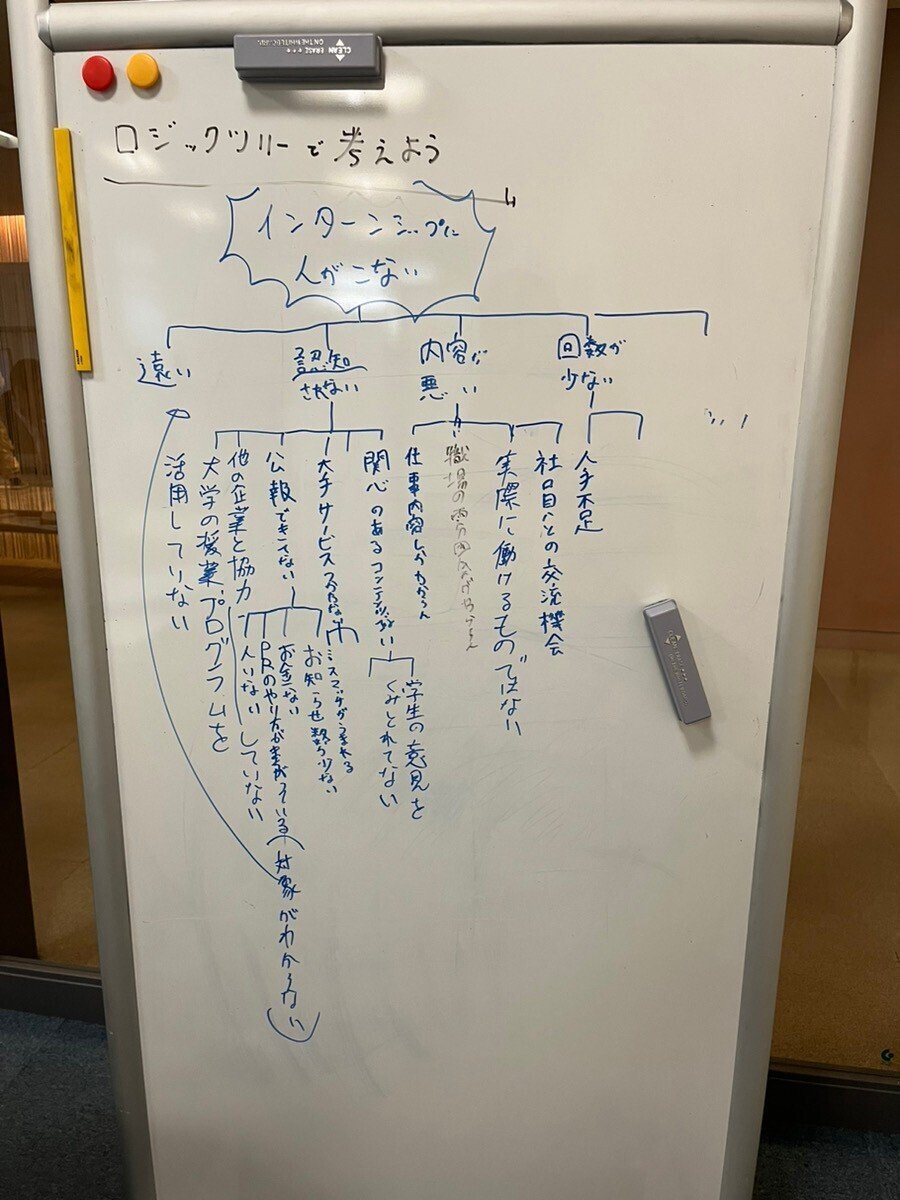 CLEAN ERASE
ON THE WHITEBOARD
ロジックツリーで考えよう
インターンシップに
人がこない
遠い
認知
されない
内容が
悪い
回数が
少ない
大学の授業、プログラムを
活用していない
他の企業と協力
していない
公報できてない
人いない
PRのやり方が
対象がわからない
お金ない
お知らせ数が少ない
大手サービス
ミスマッチがうまれる
関心のあるコンテンツが
学生の意見を
くみとれてない
仕事内容しかわからん
職場の雰囲気が
実際に働けるものではない
社員との交流機会
人手不足